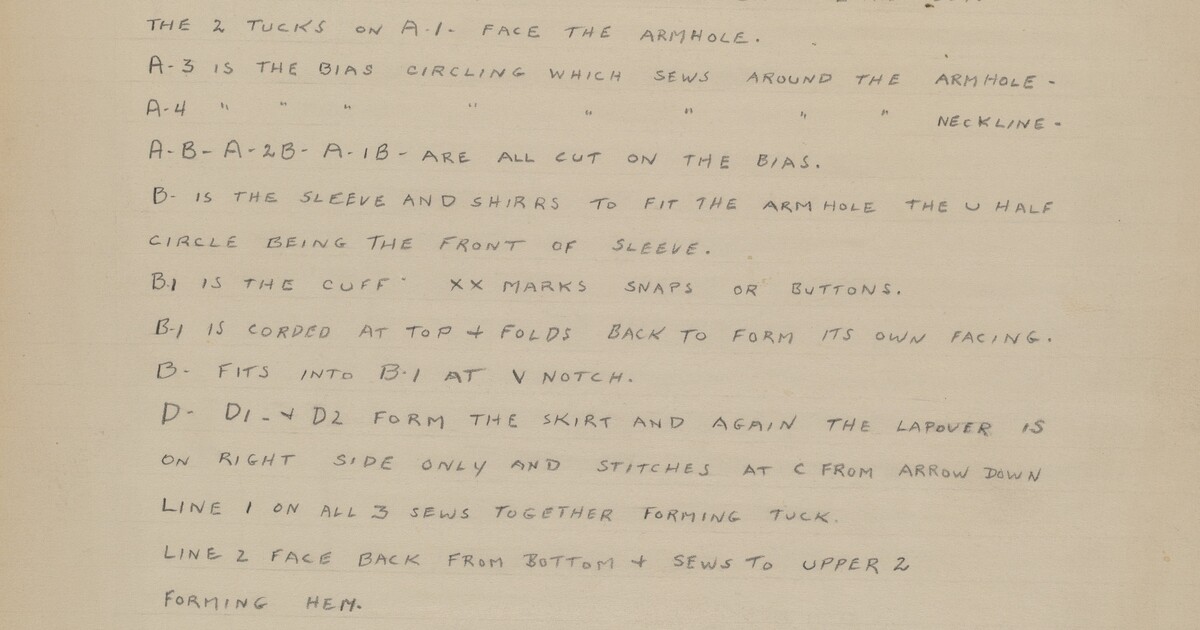 THE 2 TUCKS ON A-1- FACE THE ARMHOLE.
A-3 IS THE BIAS CIRCLING WHICH SEWS AROUND THE ARMHOLE-
A-4 " " " " " " " " NECKLINE-
A-B- A-2B- A-1B- ARE ALL CUT ON THE BIAS.
B- IS THE SLEEVE AND SHIRRS TO FIT THE ARMHOLE THE U HALF
CIRCLE BEING THE FRONT OF SLEEVE.
B.1 IS THE CUFF- XX MARKS SNAPS OR BUTTONS.
B-1 IS CORDED AT TOP + FOLDS BACK TO FORM ITS OWN FACING.
B- FITS INTO B-1 AT V NOTCH.
D- D1-+ D2 FORM THE SKIRT AND AGAIN THE LAPOVER IS
ON RIGHT SIDE ONLY AND STITCHES AT C FROM ARROW DOWN
LINE 1 ON ALL 3 SEWS TOGETHER FORMING TUCK.
LINE 2 FACE BACK FROM BOTTOM + SEWS TO UPPER 2
FORMING HEM.